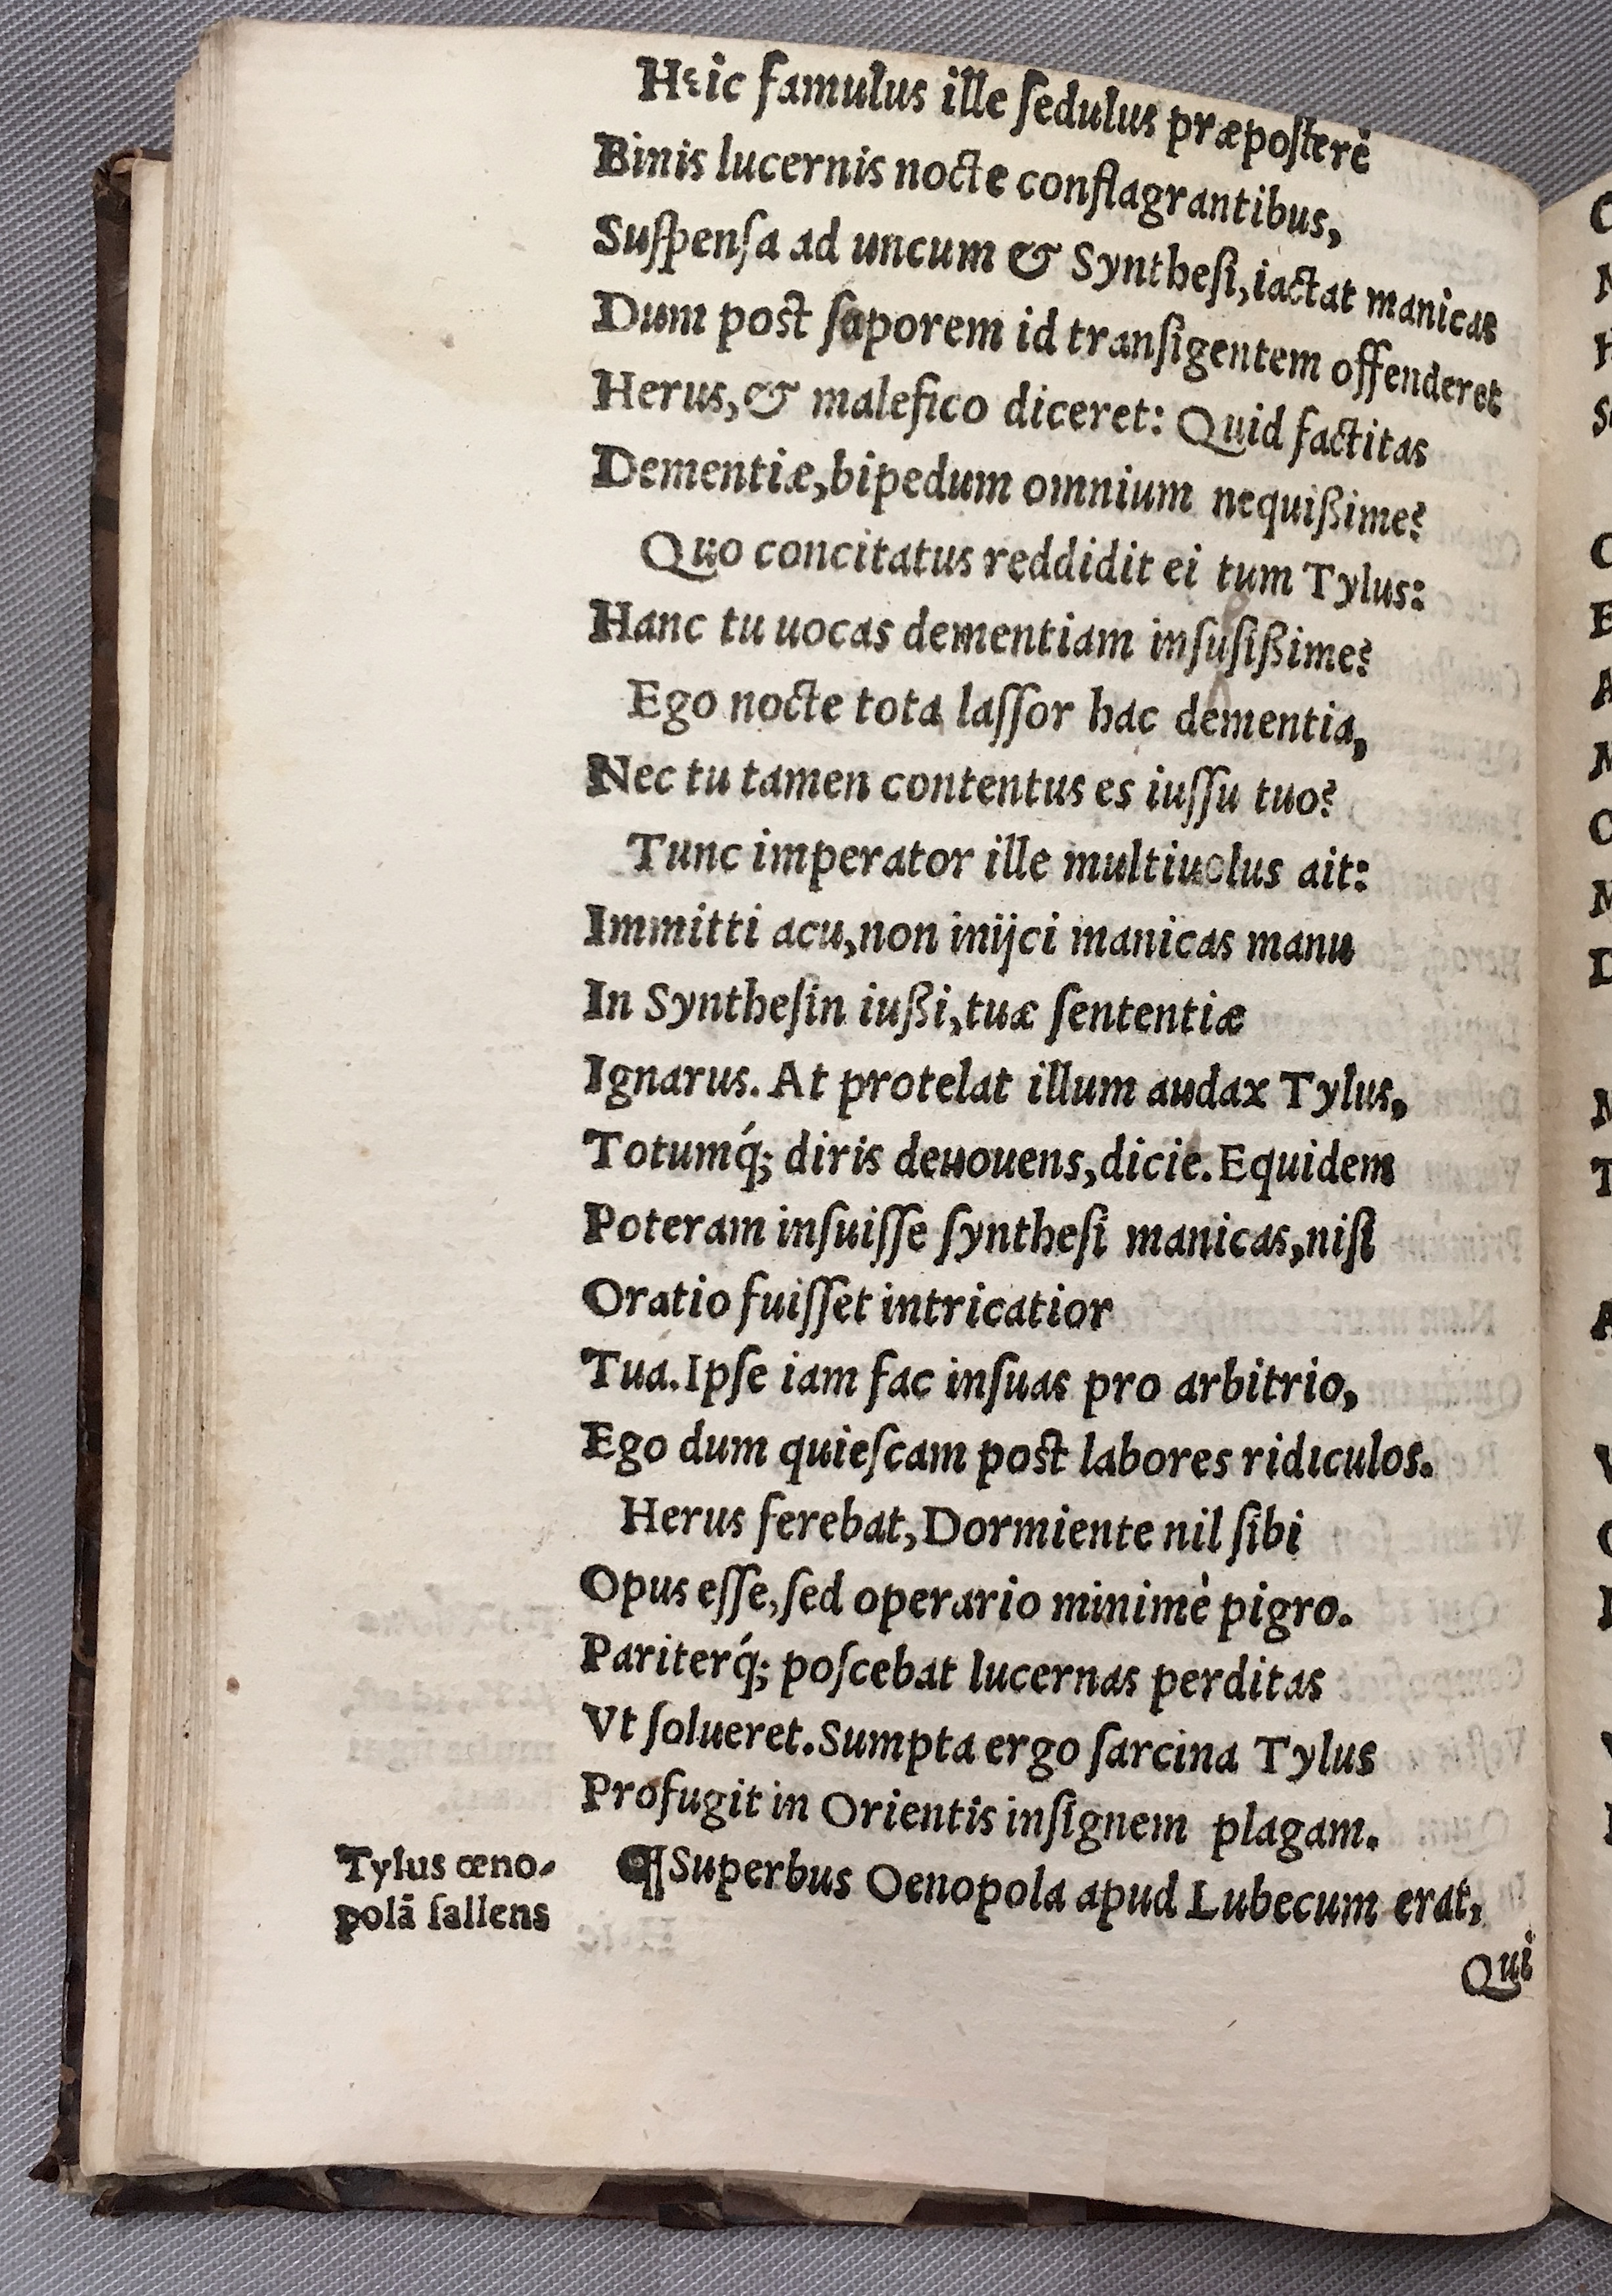 Heic famulus ille ſedulus præpoſterè
Binis lucernis nocte conflagrantibus,
Suſpenſa ad uncum & Syntheſi, iactat manicas
Dum post ſoporem id tranſigentem offenderet
Herus, & malefico diceret: Quid factitas
Dementiæ, bipedum omnium nequißime?
Quo concitatus reddidit ei tum Tylus:
Hanc tu uocas dementiam inſuſißime?
Ego nocte tota laſſor hac dementia,
Nec tu tamen contentus es iuſſu tuo?
Tunc imperator ille multiuolus ait:
Immitti acu, non inijci manicas manu
In Syntheſin iußi, tuæ ſententiæ
Ignarus. At protelat illum audax Tylus,
Totumq́; diris deuouens, dicie. Equidem
Poteram inſuiſſe ſyntheſi manicas, niſi
Oratio fuiſſet intricatior
Tua. Ipſe iam fac inſuas pro arbitrio,
Ego dum quieſcam post labores ridiculos.
Herus ferebat, Dormiente nil ſibi
Opus eſſe, ſed operario minimè pigro.
Pariterq́; poſcebat lucernas perditas
Vt ſolueret. Sumpta ergo ſarcina Tylus
Profugit in Orientis inſignem plagam.
Tylus œno-
polā fallens
¶ Superbus Oenopola apud Lubecum erat,
Qui